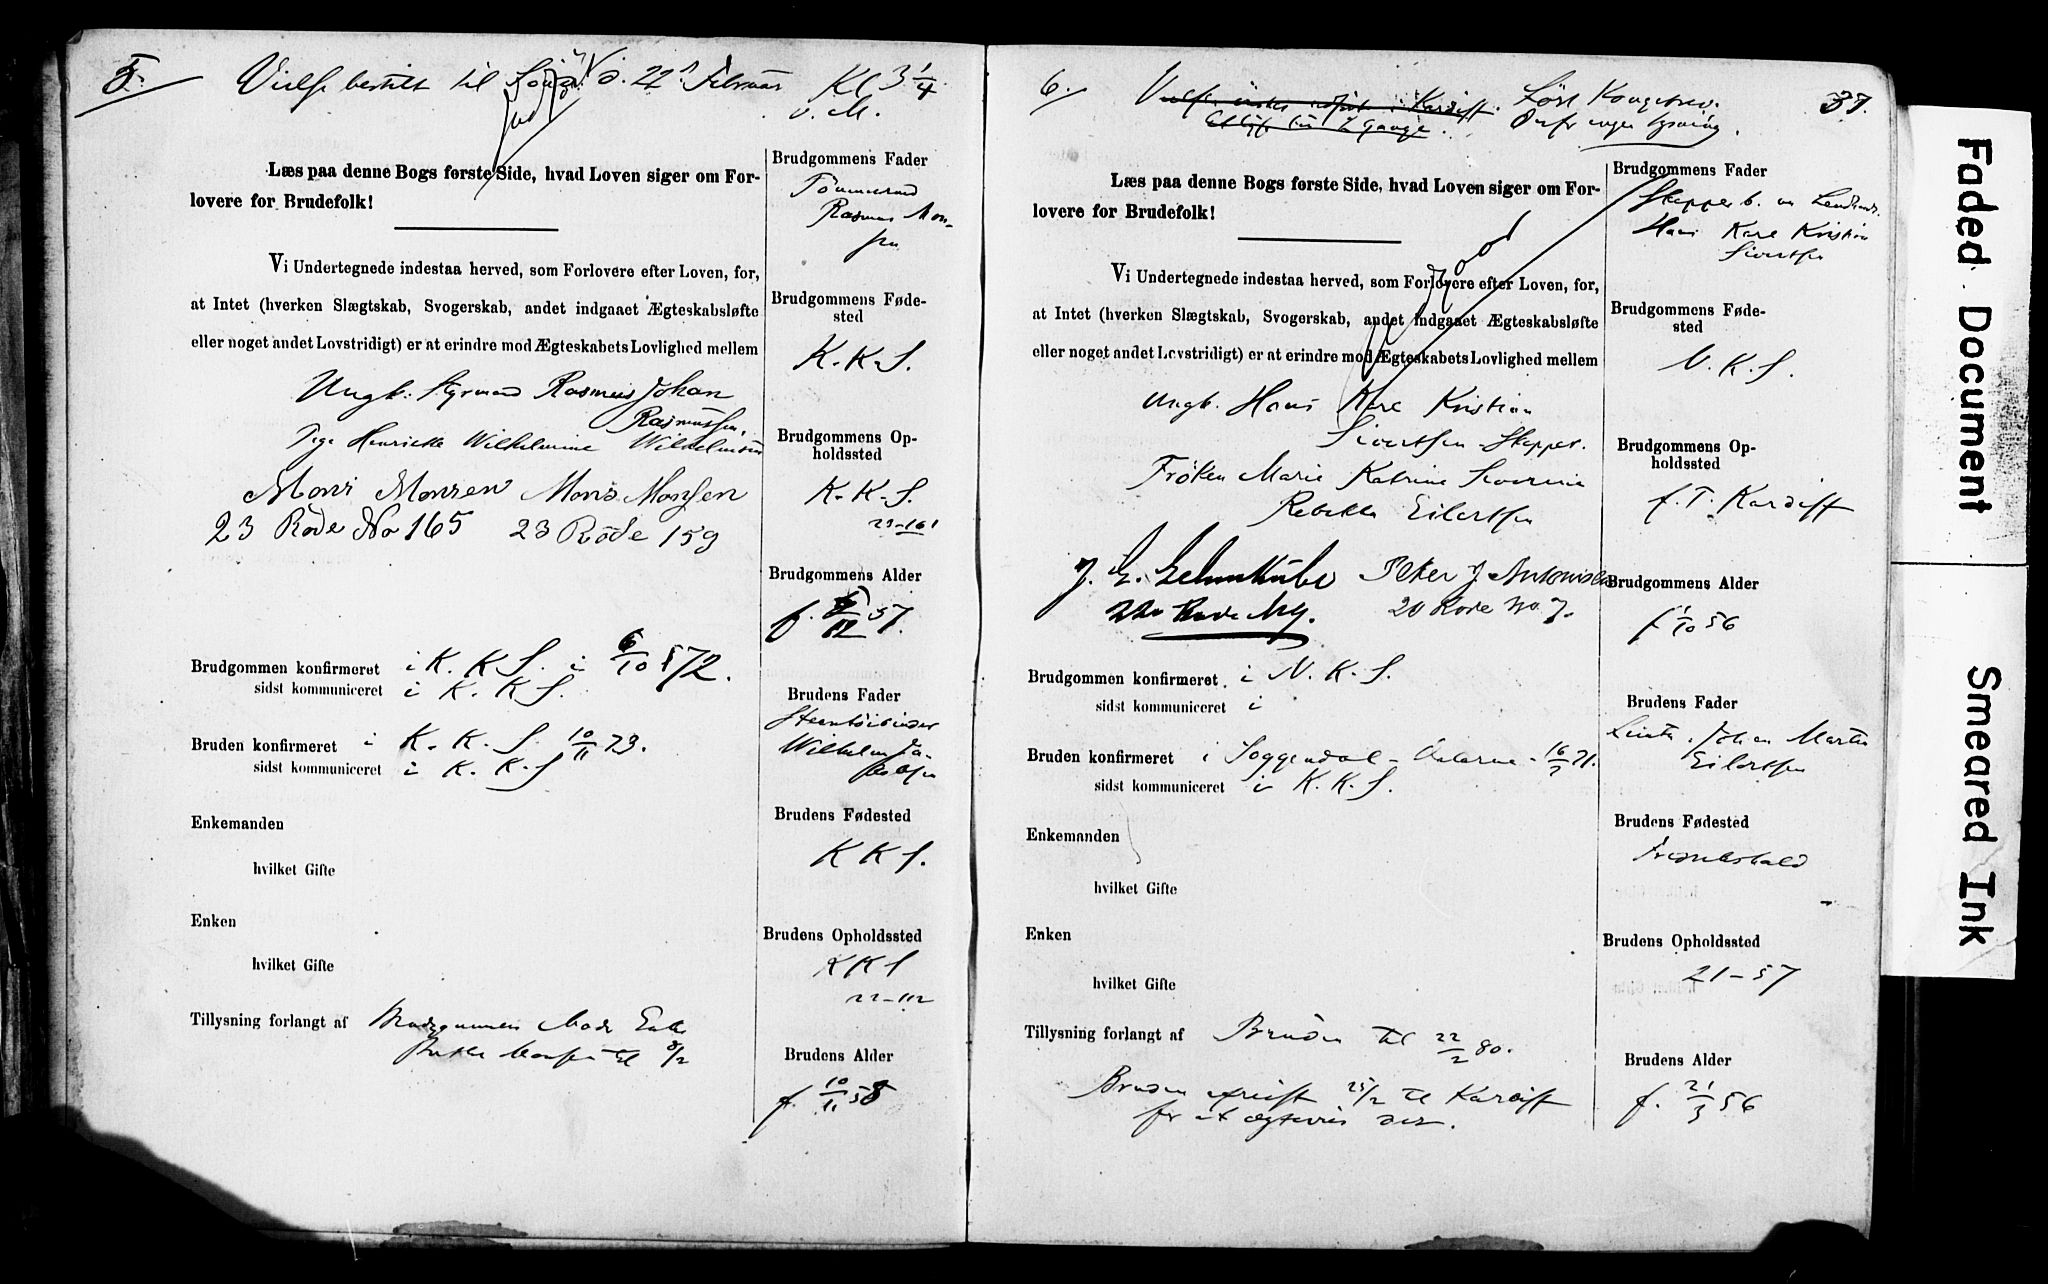 5.
Vielse bestilt til d. 22 Februar Kl 3 1/4
Læs paa denne Bogs første Side, hvad Loven siger om For-
lovere for Brudefolk!
Vi Undertegnede indestaa herved, som Forlovere efter Loven, for,
at Intet (hverken Slægtskab, Svogerskab, andet indgaaet Ægteskabsløfte
eller noget andet Lovstridigt) er at erindre mod Ægteskabets Lovlighed mellem
Ungk. Styrmand Rasmus Johan
Rasmussen.
Pige Henriette Wilhelmine Wilhelmsen
Mons Monsen Mons Monsen
23 Rode No 165 23 Rode 159
Brudgommen konfirmeret i K. K. S. i 6/10 72.
sidst kommuniceret i K. K. S.
Bruden konfirmeret i K. K. S. 10/11 73.
sidst kommuniceret i K. K. S
Enkemanden
hvilket Gifte
Enken
hvilket Gifte
Tillysning forlangt af Brudgommens Moder Enke
til 8/2
Brudgommens Fader
Tømmermand
Rasmus Mon-
sen
Brudgommens Føde-
sted
K. K. S.
Brudgommens Op-
holdssted
K. K. S.
23-161
Brudgommens Alder
f. 57.
Brudens Fader
Wilhelm Ja-
Brudens Fødested
K K S.
Brudens Opholdssted
K K S
22-112
Brudens Alder
f. 10/11 58
6.
Løst Kongebrev.
Derfor ingen Lysning.
37.
Læs paa denne Bogs første Side, hvad Loven siger om For-
lovere for Brudefolk!
Vi Undertegnede indestaa herved, som Forlovere efter Loven, for,
at Intet (hverken Slægtskab, Svogerskab, andet indgaaet Ægteskabsløfte
eller noget andet Lovstridigt) er at erindre mod Ægteskabets Lovlighed mellem
Ungk. Hans Kare Kristian
Sivertsen Skipper.
Frøken Marie Katrine Severine
Rebekka Eilertsen
Peter J Antonisen
20 Rode No 7.
Brudgommen konfirmeret i N. K. S.
sidst kommuniceret i
Bruden konfirmeret i Soggendal - Dalerne - 16/7 71.
sidst kommuniceret i K. K. S.
Enkemanden
hvilket Gifte
Enken
hvilket Gifte
Tillysning forlangt af Bruden til 22/2 80.
Bruden afreist 25/2 til Kardiff
for at ægtevies der.
Brudgommens Fader
Hans Kare Kristian
Sivertsen
Brudgommens Føde-
sted
N. K. S.
Brudgommens Op-
holdssted
f. T. Kardiff
Brudgommens Alder
f 1/10 56
Brudens Fader
Johan Martin
Eilertsen
Brudens Fødested
Fredrikshald
Brudens Opholdssted
21-57
Brudens Alder
f. 21/3 56
Faded Document
Smeared Ink